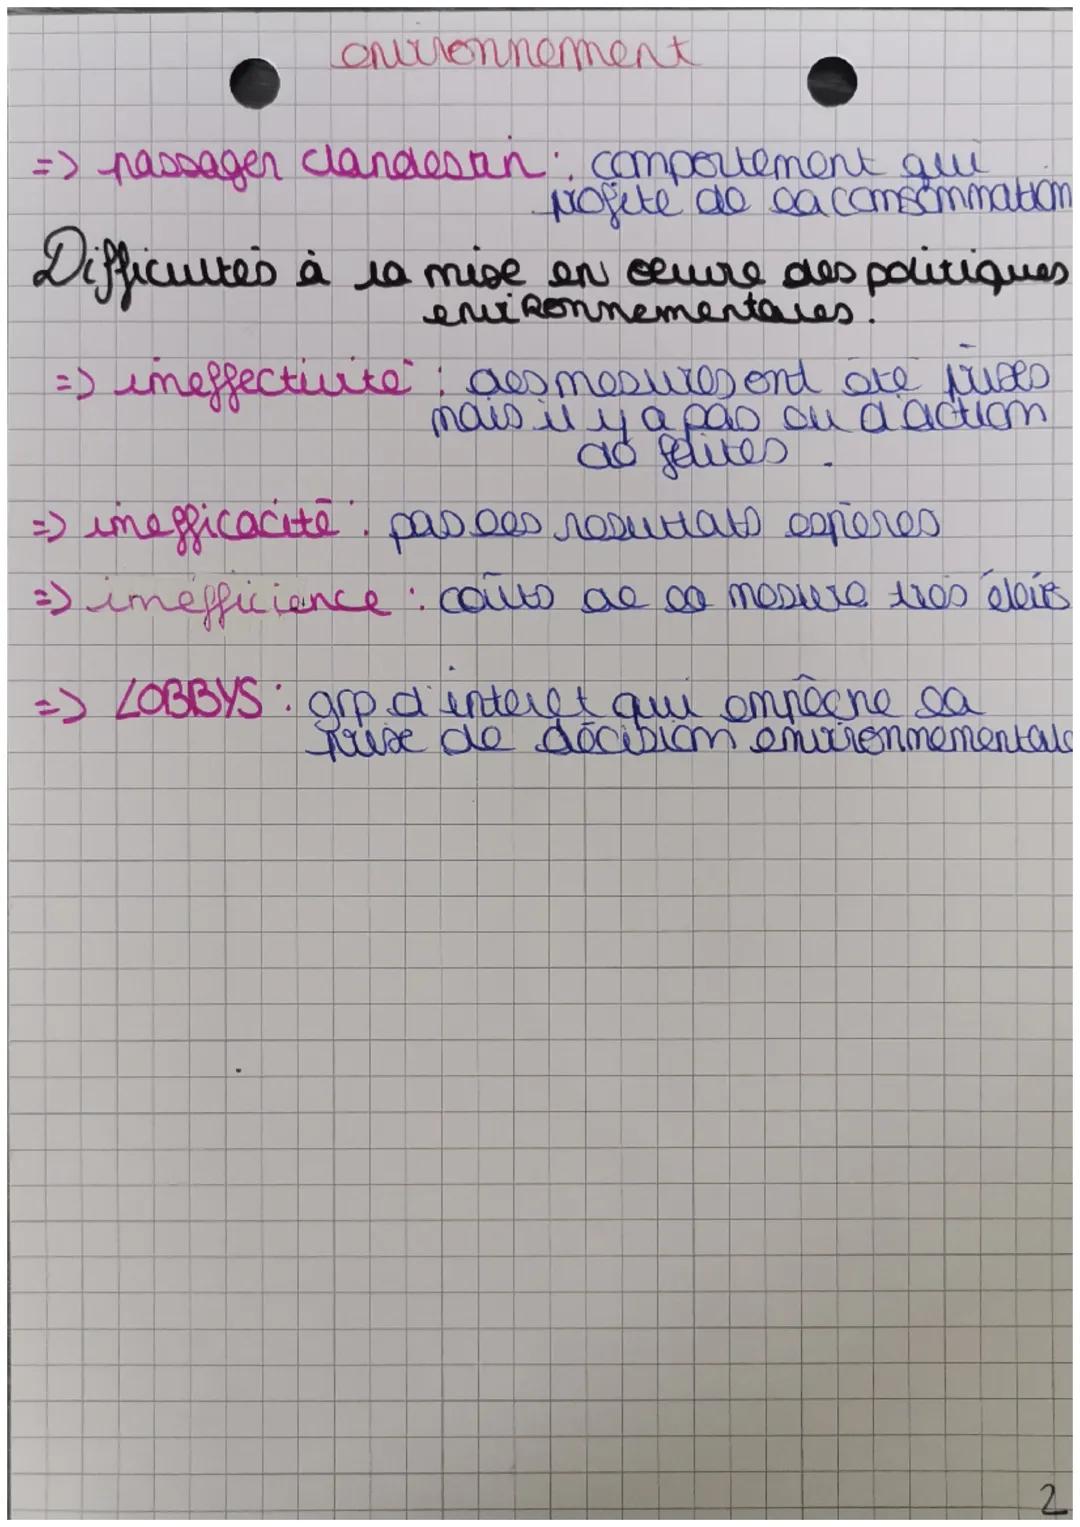 environnement
=> passager clandestin : comportement qui
profite de la consommation
Difficultés à la mise en oeuvre des politiques
environnementales.
=> ineffectivité : des mesures ont été prises
mais il y a pas eu d'action
de faites.
=> inefficacité : pas des resultats espérés
=> inéfficience : coûts de la mesure très élevés
=> LOBBYS : grp d'interet qui empêche la
prise de décision environnementale
2